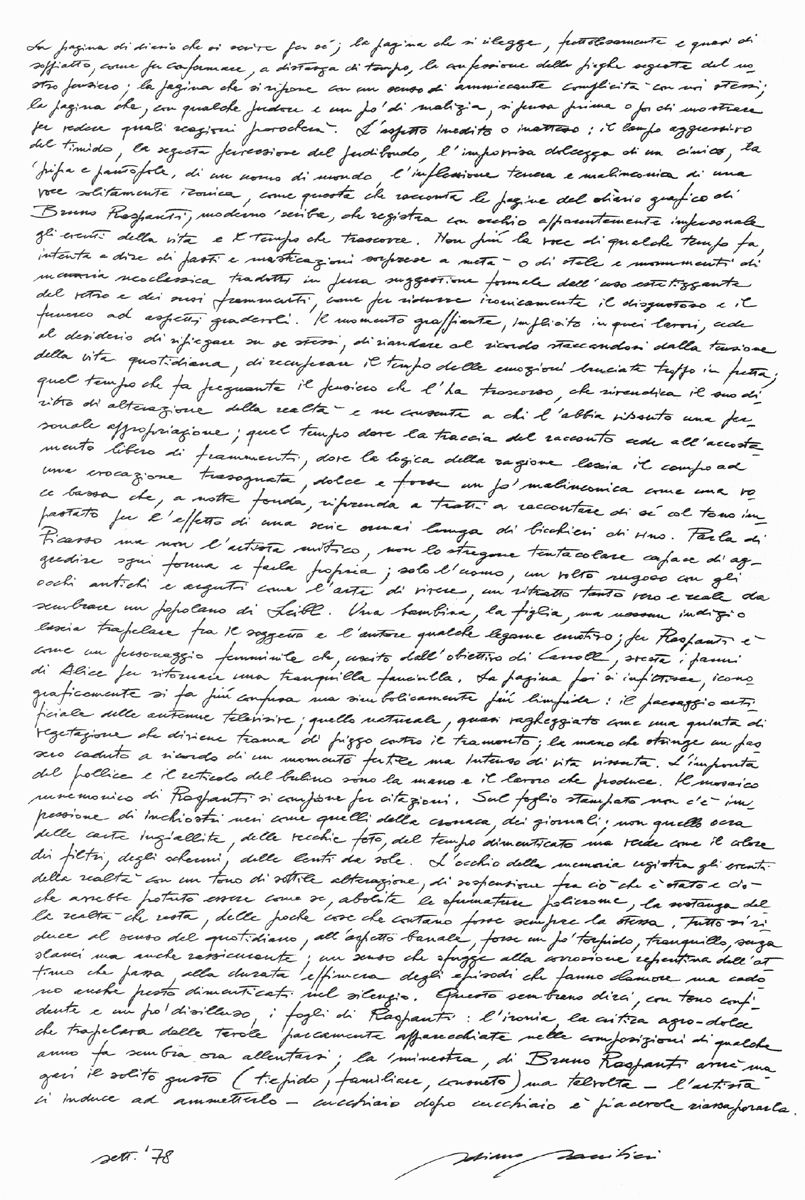 La pagina di diario che si scrive per sé; la pagina che si rilegge, frettolosamente e quasi di
soffiatto, come per confermare, a distanza di tempo, la confessione delle pieghe segrete del no-
stro pensiero; la pagina che si ripone con un senso di ammiccante complicità con noi stessi;
la pagina che, con qualche pudore e un po' di malizia, si pensa prima o poi di mostrare
per vedere quali reazioni provocherà. L'aspetto inedito o inatteso: il lampo aggressivo
del timido, la segreta perversione del pudibondo, l'improvvisa dolcezza di un cinico, la
'pipa e pantofole, di un uomo di mondo, l'inflessione tenera e malinconica di una
voce solitamente ironica, come questa che racconta le pagine del diario grafico di
Bruno Raspanti, moderno 'scriba, che registra con occhio apparentemente impersonale
gli eventi della vita e il tempo che trascorre. Non più la voce di qualche tempo fa,
intenta a dire di pasti e masticazioni sorprese a metà o di stele e monumenti di
memoria neoclassica tradotti in pura suggestione formale dall'uso estetizzante
del retro e dei suoi frammenti, come per ridurre ironicamente il disgustoso e il
funereo ad aspetti gradevoli. Il momento graffiante, implicito in quei lavori, cede
al desiderio di ripiegare su se stessi, di riandare al ricordo staccandosi dalla tensione
della vita quotidiana, di recuperare il tempo delle emozioni bruciate troppo in fretta;
quel tempo che fa pregnante il pensiero che l'ha trascorso, che rivendica il suo di-
ritto di alterazione della realtà e ne consente a chi l'abbia vissuto una per-
sonale appropriazione; quel tempo dove la traccia del racconto cede all'accosta-
mento libero di frammenti, dove la logica della ragione lascia il campo ad
una evocazione trasognata, dolce e forse un po' malinconica come una vo-
ce bassa che, a notte fonda, riprenda a tratti a raccontare di sé col tono im-
pastato per l'effetto di una serie ormai lunga di bicchieri di vino. Parla di
Picasso ma non l'artista mitico, non lo stregone tentacolare capace di ag-
gredire ogni forma e farla propria; solo l'uomo, un volto rugoso con gli
occhi antichi e arguti come l'arte di vivere, un ritratto tanto vero e reale da
sembrare un popolano di Leibl. Una bambina, la figlia, ma nessun indizio
lascia trapelare fra il soggetto e l'autore qualche legame emotivo; per Raspanti è
come un personaggio femminile che, uscito dall'obiettivo di Carroll, svesta i panni
di Alice per ritornare una tranquilla fanciulla. La pagina poi si infittisce, icono-
graficamente si fa più confusa ma simbolicamente più limpida: il paesaggio arti-
ficiale delle antenne televisive; quello naturale, quasi vagheggiato come una quinta di
vegetazione che diviene trama di pizzo contro il tramonto; la mano che stringe un pas-
sero caduto a ricordo di un momento fertile ma intenso di vita vissuta. L'impronta
del pollice e il reticolo del bulino sono la mano e il lavoro che produce. Il mosaico
mnemonico di Raspanti si compone per citazioni. Sul foglio stampato non c'è im-
pressione di inchiostri neri come quelli della cronaca, dei giornali; non quello ocra
delle carte ingiallite, delle vecchie foto, del tempo dimenticato ma verde come il colore
dei filtri, degli schermi, delle lenti da sole. L'occhio della memoria registra gli eventi
della realtà con un tono di sottile alterazione, di sospensione fra ciò che è stato e ciò
che avrebbe potuto essere come se, abolite le sfumature policrome, la sostanza del-
la realtà che resta, delle poche cose che contano fosse sempre la stessa. Tutto si ri-
duce al senso del quotidiano, all'aspetto banale, forse un po' torpido, tranquillo, senza
slanci ma anche rassicurante; un senso che sfugge alla corrosione repentina dell'at-
timo che passa, alla durata effimera degli episodi che fanno clamore ma cado-
no anche presto dimenticati nel silenzio. Questo sembrano dirci, con tono confi-
dente e un po' disilluso, i fogli di Raspanti: l'ironia, la critica agro-dolce
che trapelava dalle tavole parcamente apparecchiate nelle composizioni di qualche
anno fa sembra ora allentarsi; la 'minestra, di Bruno Raspanti avrà ma-
gari il solito gusto (tiepido, familiare, consueto) ma talvolta – l'artista
ci induce ad ammetterlo – cucchiaio dopo cucchiaio è piacevole riassaporarla.
sett. '78